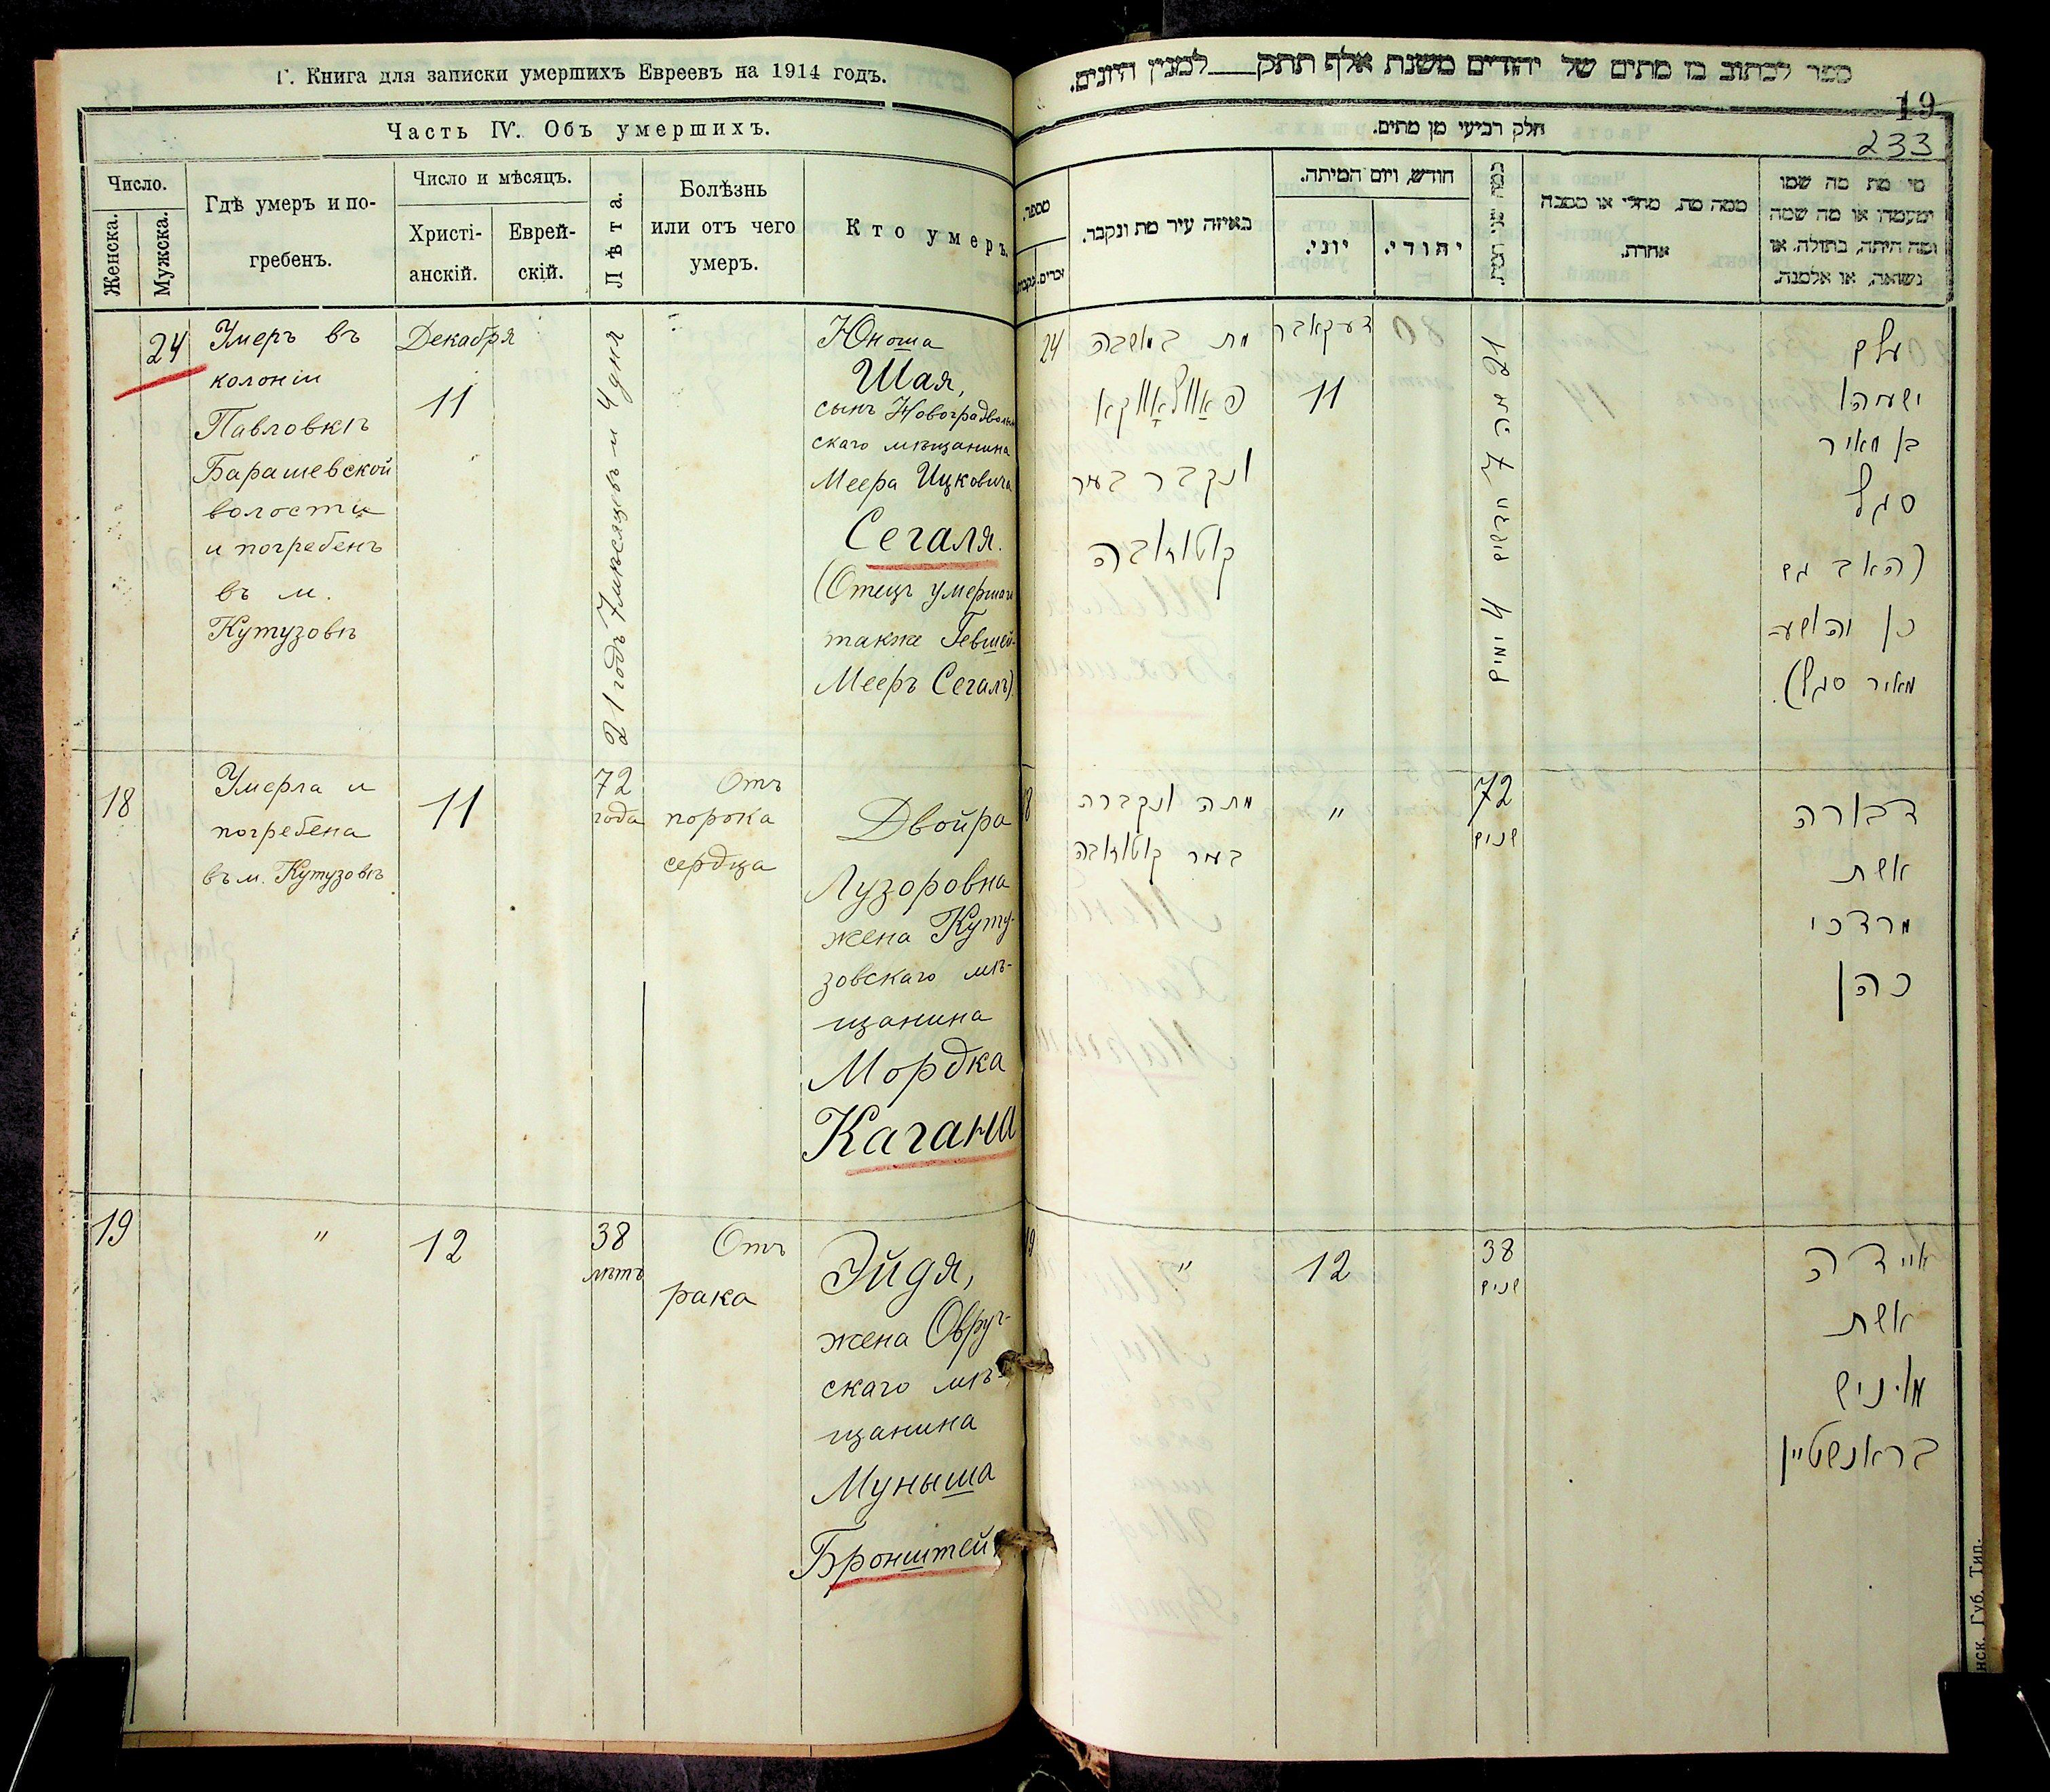 Г. Книга для записки умершихъ Евреевъ на 1914 годъ.
Часть IV. Объ умершихъ.
Число.
Женска.
Мужска.
Гдѣ умеръ и по-
гребенъ.
Число и мѣсяцъ.
Христі-
анскій.
Еврей-
скій.
Лѣта.
Болѣзнь
или отъ чего
умеръ.
Кто умеръ.
24
Умеръ въ
колоніи
Павловкѣ
Барашевской
волости
и погребенъ
въ м.
Кутузовѣ
Декабря
11
21 годъ 7 мѣсяцевъ и 4 дня
Юноша
Шая,
сынъ Новоградволын
скаго мѣщанина
Меера Ицковича
Сегаля.
(Отецъ умершаго
также Гевшей-
Мееръ Сегалъ).
18
Умерла и
погребена
въ м. Кутузовѣ
11
72
года
Отъ
порока
сердца
Двойра
Лузоровна
жена Куту-
зовскаго мѣ-
щанина
Мордка
Кагана
19
"
12
38
лѣтъ
Отъ
рака
Эйдя,
жена Овруч-
скаго мѣ-
щанина
Муныша
Бронштейн
ספר לכתוב בו מתים של יהודים משנת אלף תתק למנין היונים.
19
233
חלק רביעי מן מתים.
מספר.
זכרים.
נקבות.
באיזה עיר מת ונקבר.
חודש, ויום המיתה.
יוני.
יהודי.
ממה מת, מחלי או מסבה
אחרת.
מי מת מה שמו
ומעמדו או מה שמה
ומה היתה, בתולה, או
נשואה, או אלמנה.
24
מת במושבה
פאַוולאָווקא
ונקבר בעיר
קוטוזובה
דעקאבר
11
21 שנה 7 חדשים 4 ימים
עלם
ישעיהו
בן מאיר
סגל
(האב גם
כן יהושע
מאיר סגל).
18
מתה ונקברה
בעיר קוטוזובה
"
72
שנים
דבורה
אשת
מרדכי
כהן
19
"
12
38
שנים
איידה
אשת
מוניש
בראנשטיין
нск. Губ. Тип.